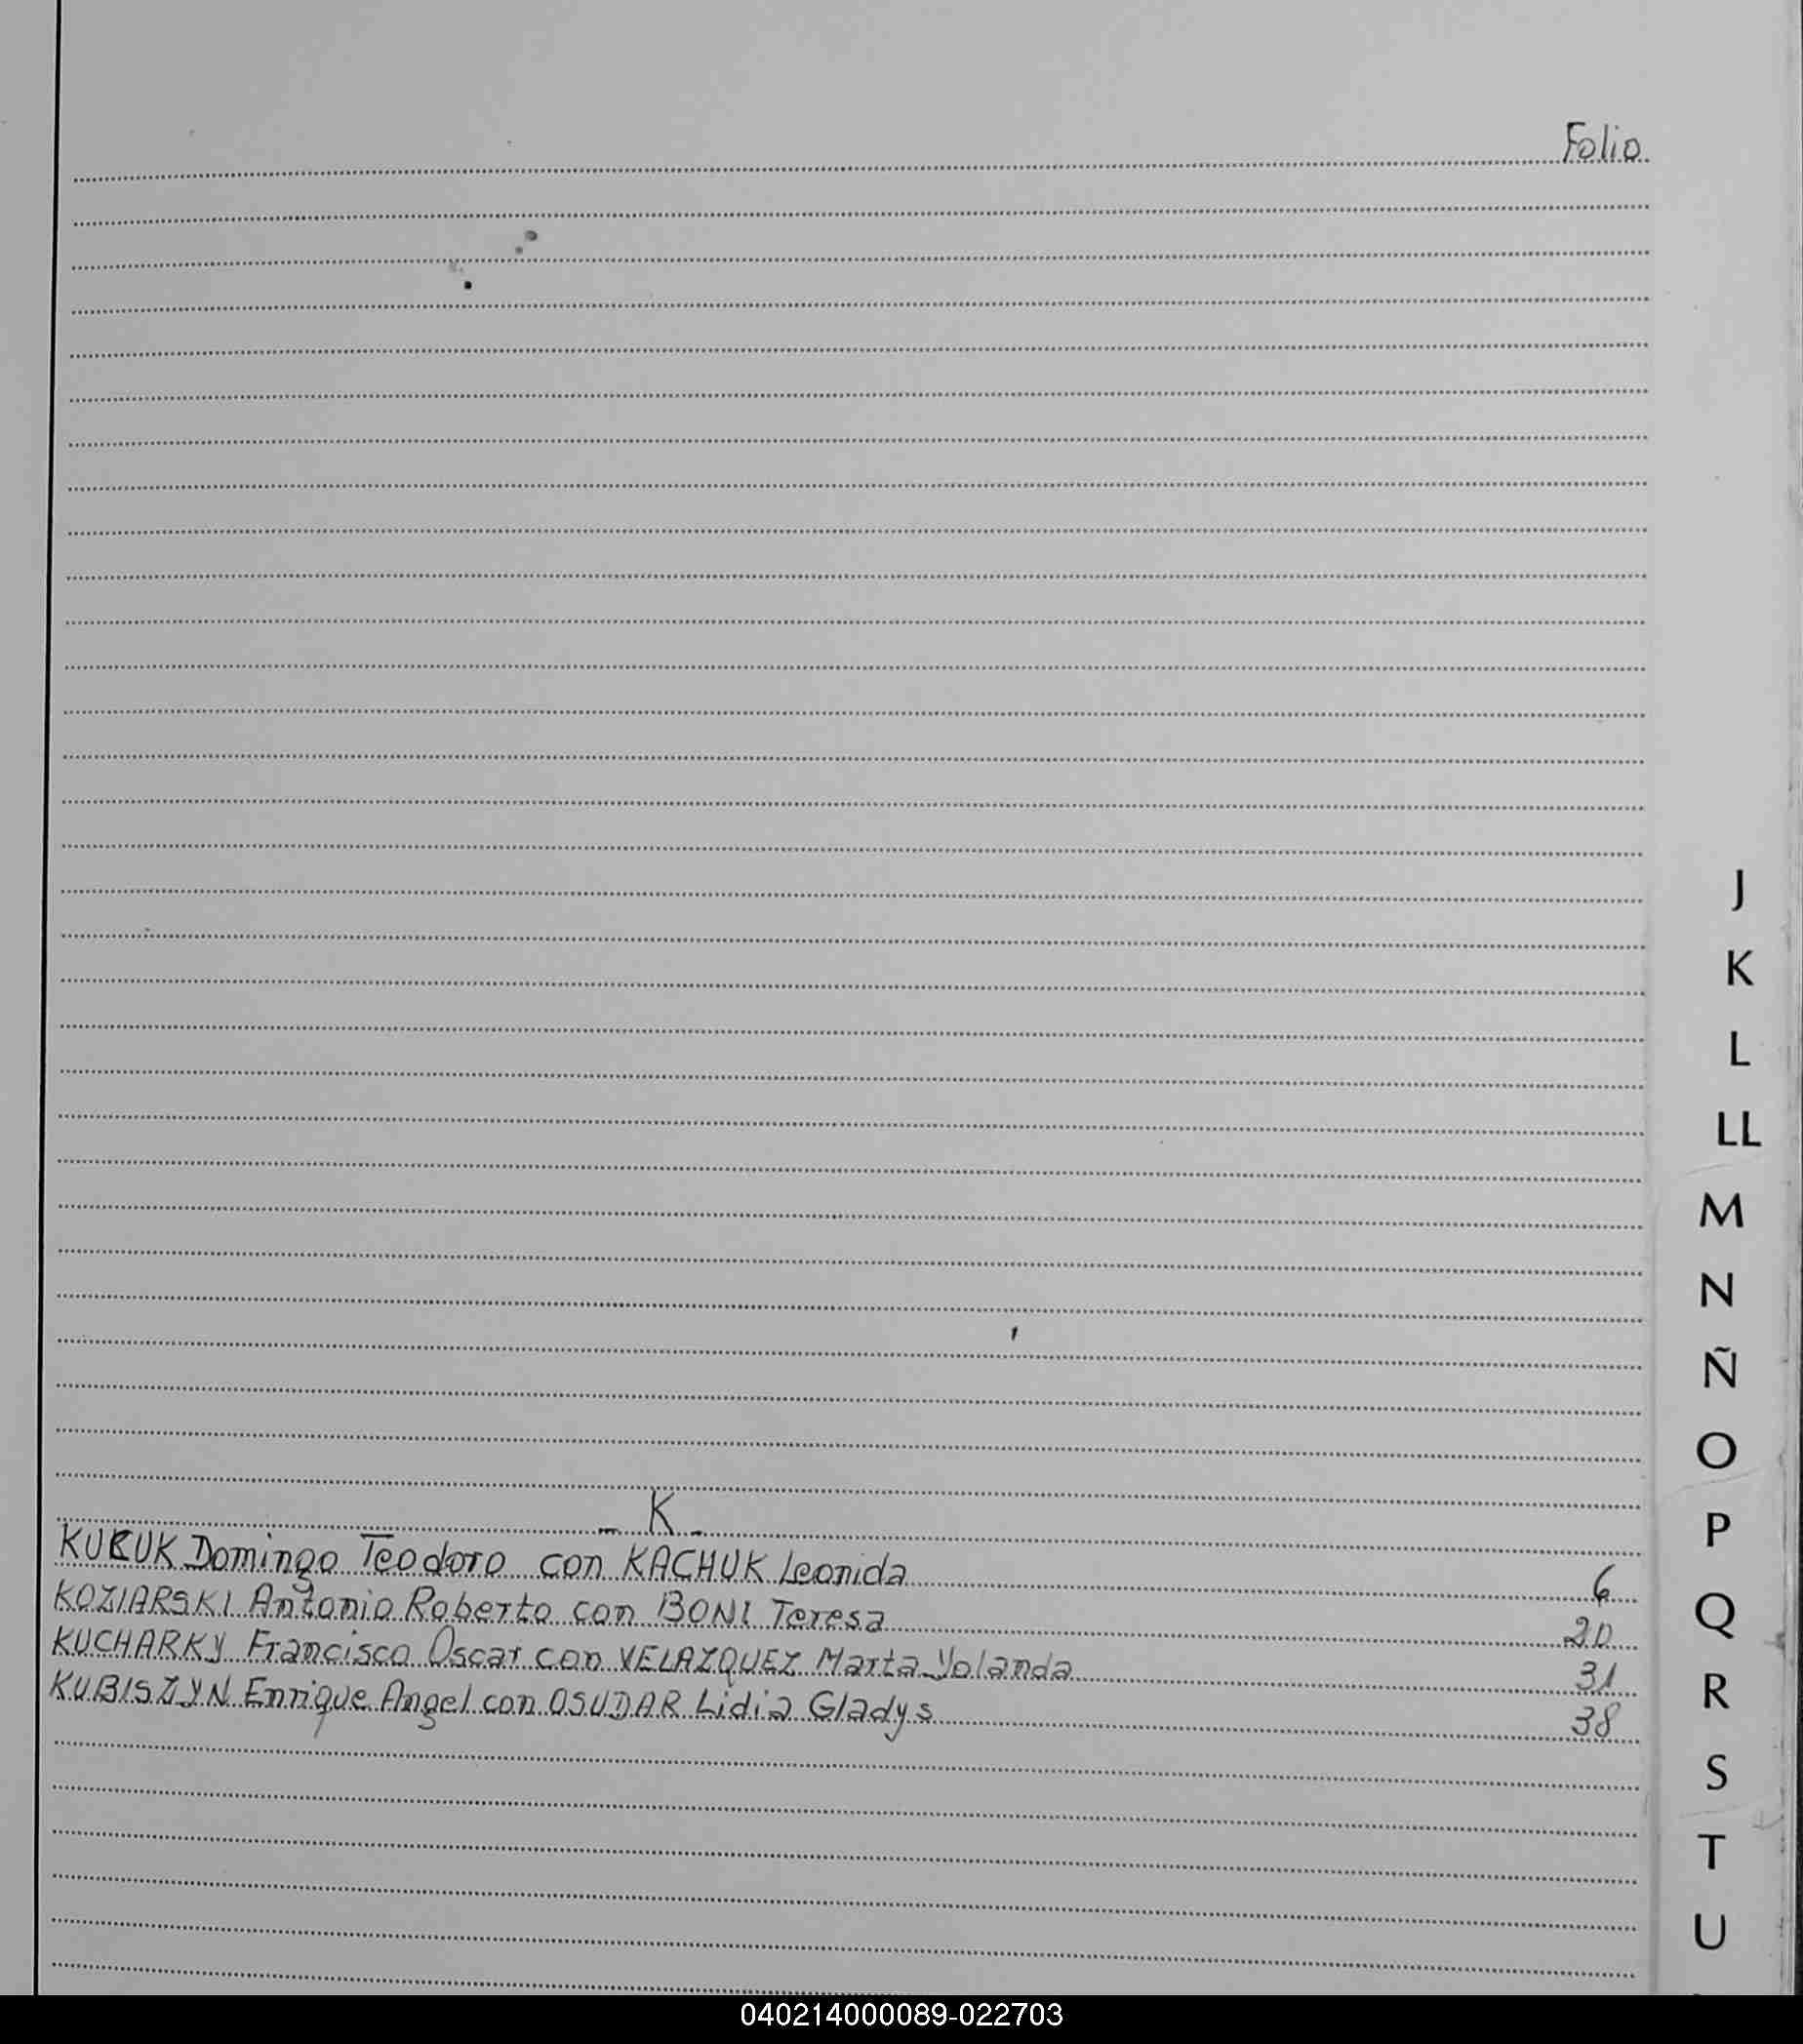 Folio
J
K
L
LL
M
N
Ñ
O
P
Q
R
S
T
U
- K -
KUCUK Domingo Teodoro con KACHUK Leonida 6
KOZIARSKI Antonio Roberto con BONI Teresa 20
KUCHARKY Francisco Oscar con VELAZQUEZ Marta Yolanda 31
KUBISZYN Enrique Angel con OSUDAR Lidia Gladys 38
040214000089-022703